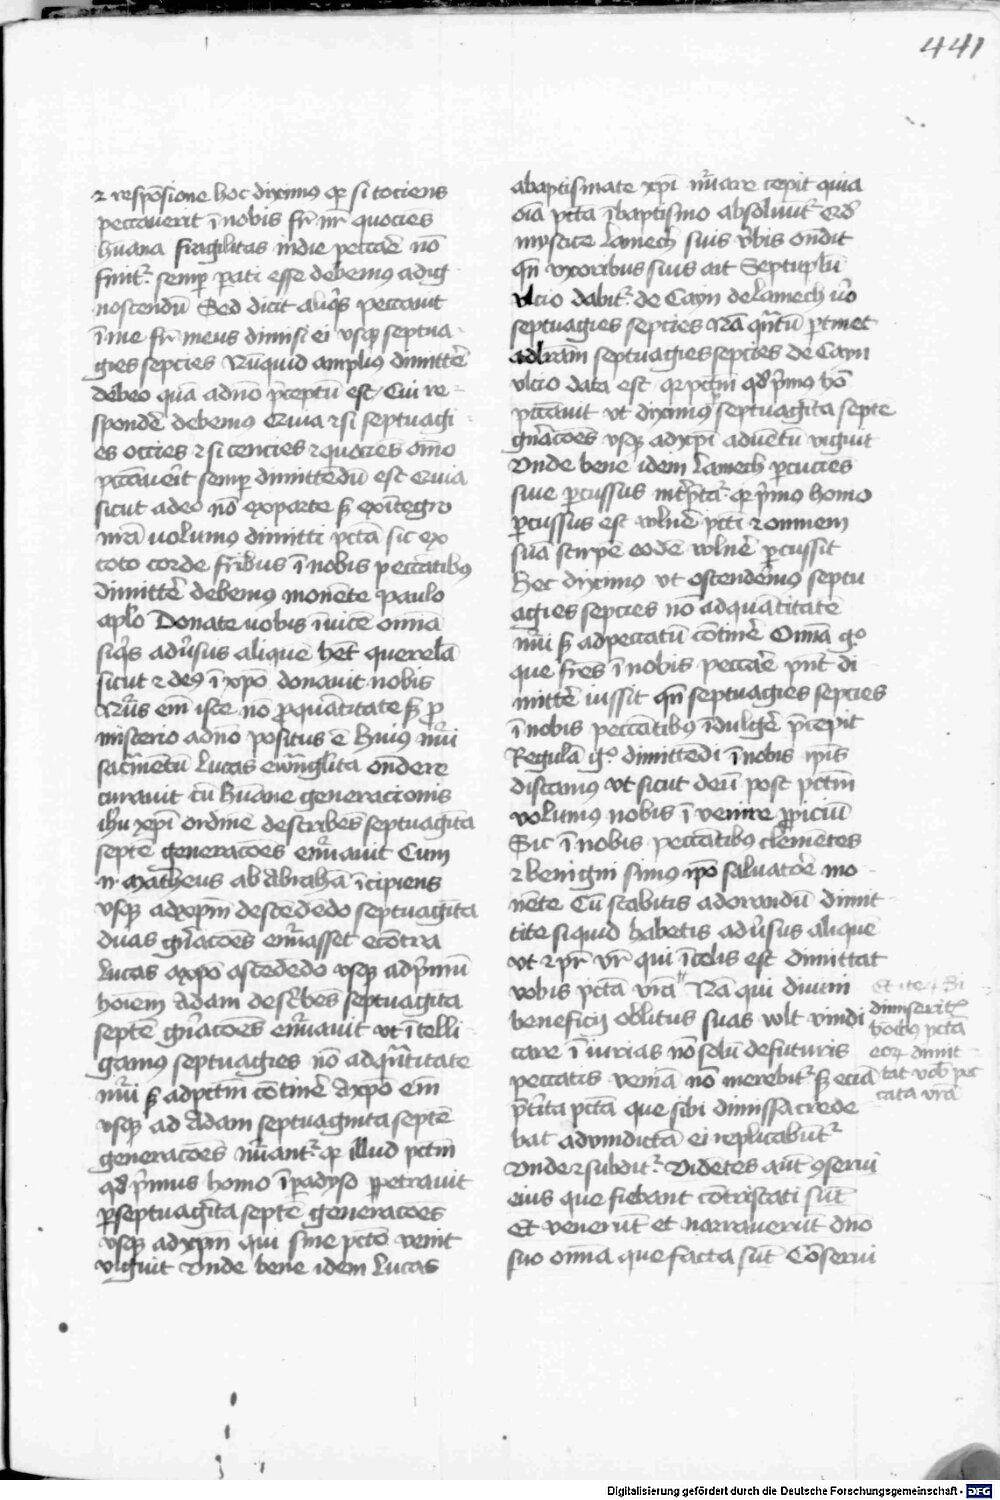 441
⁊ respōsione hoc diximus qr si tociens
peccauerit ī nobis fr̄ nr̄ quociēs
huāna fragilitas indie peccādē nō
finit᷑ semꝑ parati esse debemus adig
noscendū Sed dicit aliq̄s peccauit
ī me fr̄ meus dimisi ei vsqꝫ septua
gies sepcies Nūquid amplius dimittē
debeo quā adnō p̄ceptū est Cui re
spondē debemus Q̄uia ⁊ si septuagi
es occies ⁊ si cencies ⁊ quociēs om̄o
pccāuerīt semꝑ dimittēdū est Q̄uia
sicut adeo nō exparte sꝫ exītegro
nrā uolumus dimitti pctā sic ex
toto corde fr̄ibus ī nobis peccātibus
dimittē debemus monēte paulo
aplo Donate uobis īuicē omīa
siq̄s adūsus alique h̄et querelā
sicut ⁊ deus ī xp̄o donauit nobis
Nūs em̄ iste nō ꝓquātitate sꝫ ꝓ
misterio adnō positus ē Huius nūi
sacr̄mētū Lucas ewāglīta ondere
curauit cū Huāne generacionis
ihū xp̄i ordinē describēs septuagīta
septē generacōes enūauit Cum
n̄ Matheus ab Abrahā īcipiens
vsqꝫ adxp̄m descēdēdo septuagīta
duas gn̄acōes enūasset ecōtra
Lucas axpō ascēdēdo vsqꝫ adp̄mū
hoīem Adam describ̄es septuagīta
septē gn̄acōes enūauit vt ītelli
gamus septuagies nō adqn̄titate
nūi sꝫ adpctm̄ cōtinē Axpō em̄
vsqꝫ ad Adam septuagīnta septē
generacōes nūant᷑ qr illud pctm̄
qd̄ p̄mus homo īparadyso ꝑpetrauit
ꝑseptuagīta septē generacōes
vsqꝫ adxp̄m qui sine pctō venit
viguit Vnde bene idem Lucas
abaptismate xp̄i nūare cepit quia
oīa pctā ībaptismo absoluūt᷑ Qd̄
mystice Lamech suis v̄bis ondit
qn̄ vxoribus suis ait Septuplū
vlcio dabit᷑ de Cayn deLamech ūo
septuagies sepcies Nā qn̄tū ꝑtinet
adl̄ram septuagies sepcies de Cayn
vlcio data est qr pctm̄ qd̄ p̄mus hō
pccāuit vt diximus septuagīta septē
gn̄acōes vsqꝫ adxp̄i aduētū viguit
Vnde bene idem Lamech ꝑcucīes
siue ꝑcussus intp̄tat᷑ qr p̄mo homo
ꝑcussus est wlnē pcti ⁊ omnem
suā stirpē eodē wlnē ꝑcussit
Hec diximus vt ostenderēmus septu
agies sepcies nō adquātitatē
nūi sꝫ adpeccatū cōtinē Omīa gº
que fr̄es ī nobis peccāe pn̄t di
mittē iussit qn̄ septuagies sepcies
ī nobis peccātibus īdulgē p̄cepit
Regulā gº dimittēdi ī nobis ip̄is
discamus vt sicut deū post pctm̄
volumus nobis īuenire ꝓpiciū
Sic ī nobis peccātibus clemētes
⁊ benigni simus ip̄o saluatōe mo
nēte Cū stabitis adorandū dimit
tite siquid habetis adūsus aliquē
vt ⁊ pr̄ vr̄ qui īcelis est dimittat
vobis pctā vrā Nā qui diuini
beneficij oblitus suas wlt vindi
care īiurias nō solū defuturis
peccatis veniā nō merebit᷑ sꝫ eciā
p̄tita pctā que sibi dimissa crede
bat advindictā ei replicabūt᷑
Vnde ⁊ subdit᷑ Vidētes aūt ꝯserui
eius que fiebant cōtristati sūt
Et venerūt et narrauerūt dn̄o
suo omīa que facta sūt Cōserui
Et ite Si
dimiseritis
hoībus pctā
eoꝝ dimit
tat vob̄ pec
cata vrā
Digitalisierung gefördert durch die Deutsche Forschungsgemeinschaft - DFG